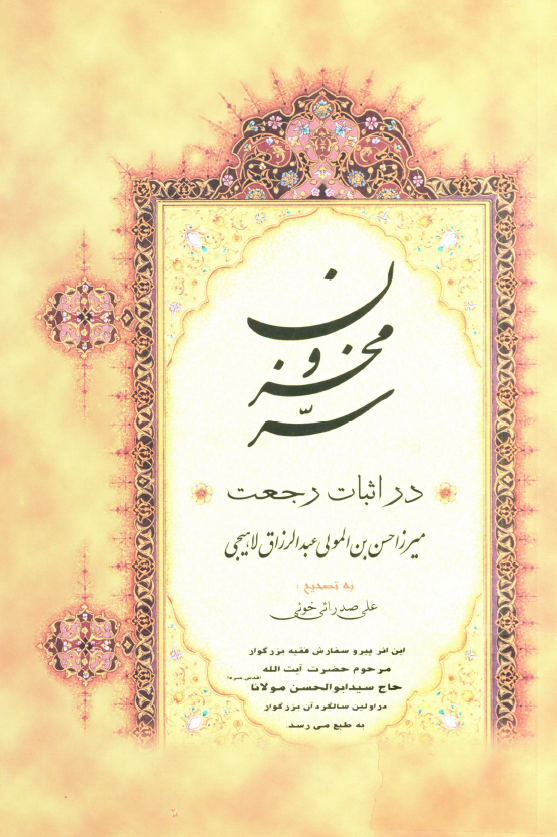 سرّ
مخزون
در اثبات رجعت
میرزا حسن بن المولی عبدالرزاق لاهیجی
به تصحیح :
علی صدرائی خوئی
این اثر پیرو سفارش فقیه بزرگوار
مرحوم حضرت آیت الله
حاج سیدابوالحسن مولانا
در اولین سالگرد آن بزرگوار
به طبع می رسد.